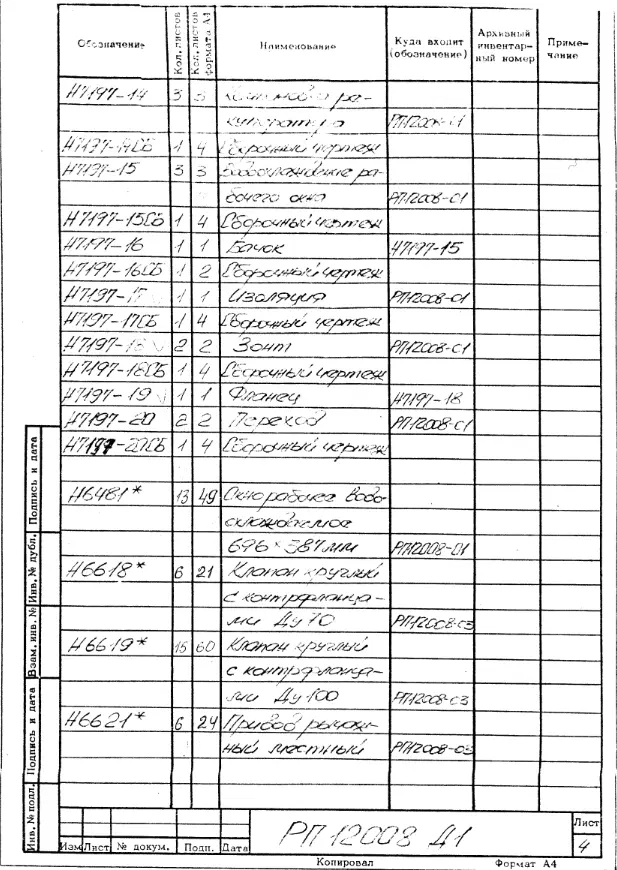 Обозначение | Кол. листов | Кол. листов формата А4 | Наименование | Куда входит (обозначение) | Архивный инвентарный номер | Примечание
Н7197-14 3 3
РП12008-01
Н7197-14СБ 1 4 Сборочный чертеж
Н7197-15 3 3 Водоохлаждение ра-
бочего окна РП12008-01
Н7197-15СБ 1 4 Сборочный чертеж
Н7197-16 1 1 Бачок Н7197-15
Н7197-16СБ 1 2 Сборочный чертеж
Н7197-17 1 1 Изоляция РП12008-01
Н7197-17СБ 1 4 Сборочный чертеж
Н7197-18 2 2 Зонт РП12008-01
Н7197-18СБ 1 4 Сборочный чертеж
Н7197-19 1 1 Фланец Н7197-18
Н7197-20 2 2 Переход РП12008-01
Н7197-20СБ 1 4 Сборочный чертеж
Н6481* 13 49 Окно рабочее водо-
охлаждаемое
696×387мм РП12008-01
Н6618* 6 21 Клапан круглый
с контрфланца-
ми Ду 70 РП12008-03
Н6619* 15 60 Клапан круглый
с контрфланца-
ми Ду 100 РП12008-03
Н6621* 6 24 Привод рычаж-
ный местный РП12008-03
Инв. № подл. Подпись и дата Взам. инв. № Инв. № дубл. Подпись и дата
РП 12008 Д1
Лист
4
Изм Лист № докум. Подп. Дата
Копировал Формат А4